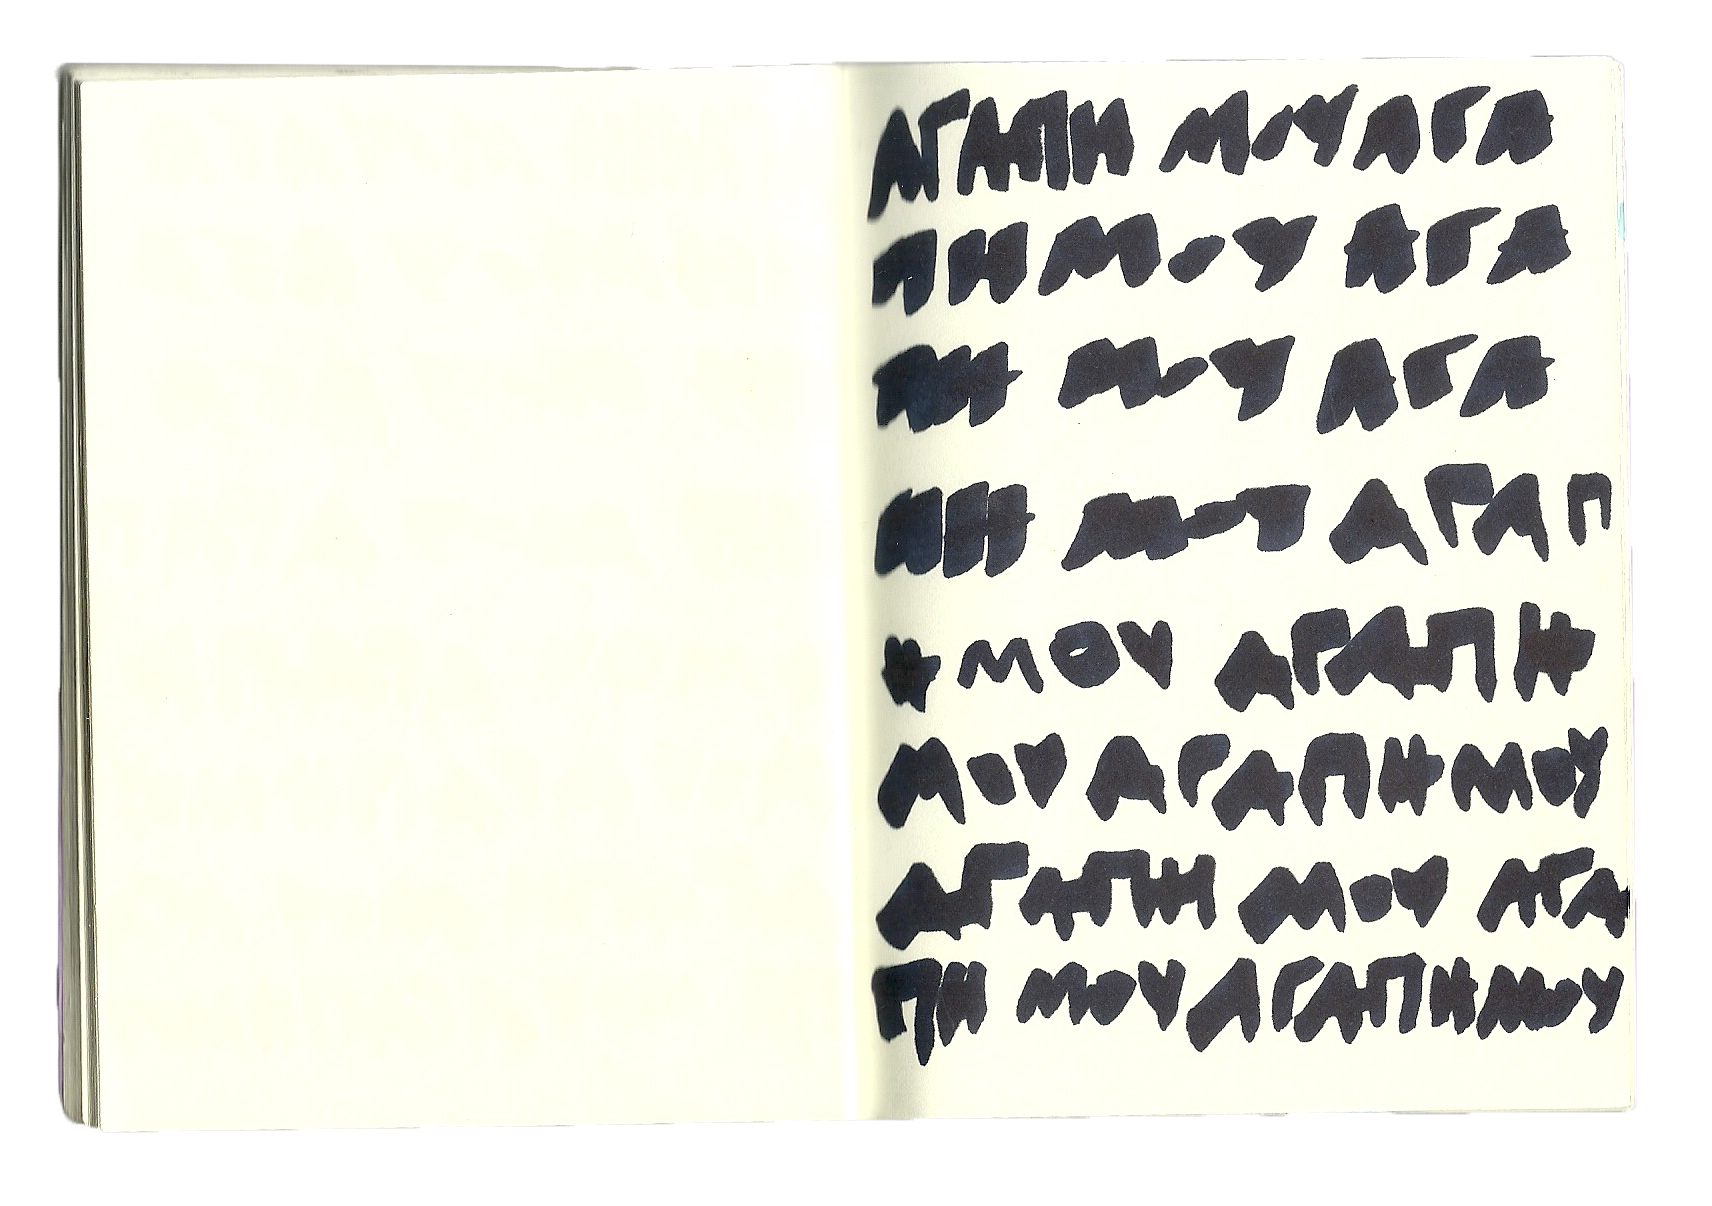 ΑΓΑΠΗ ΜΟΥ ΑΓΑ
ΠΗ ΜΟΥ ΑΓΑ
ΠΗ ΜΟΥ ΑΓΑ
ΠΗ ΜΟΥ ΑΓΑΠ
Η ΜΟΥ ΑΓΑΠΗ
ΜΟΥ ΑΓΑΠΗ ΜΟΥ
ΑΓΑΠΗ ΜΟΥ ΑΓΑ
ΠΗ ΜΟΥ ΑΓΑΠΗ ΜΟΥ